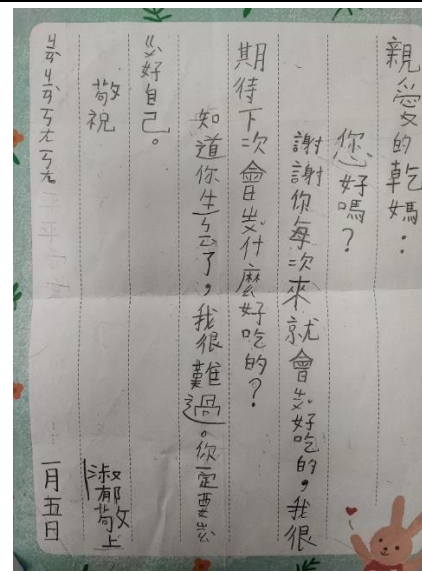 親愛的乾媽：
您好嗎？
謝謝你每次來就會ㄓㄨˇ好吃的，我很
期待下次會ㄓㄨˇ什麼好吃的？
知道你生ㄅㄧㄥˋ了，我很難過。你一定要ㄓㄠˋ
ㄍㄨˋ好自己。
敬祝
ㄐㄧㄢˋㄐㄧㄢˋㄎㄤㄎㄤ
淑郁敬上
一月五日